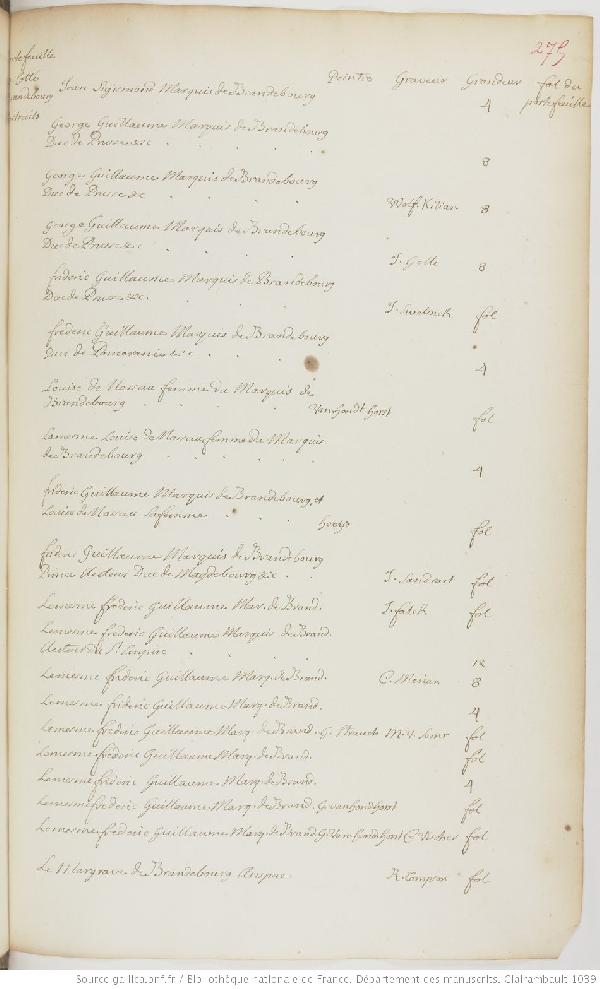 275
Peintre Graveur Grandeur fol du
portefeuille
Jean Sigismond Marquis de Brandebourg 4
George Guillaume Marquis de Brandebourg
Duc de Prusse &c 8
George Guillaume Marquis de Brandebourg
Duc de Prusse &c Wolf. Kilian 8
George Guillaume Marquis de Brandebourg
Duc de Prusse &c J. Gelle 8
frideric Guillaume Marquis de Brandebourg
Duc de Prusse &c. fol
frederic Guillaume Marquis de Brandebourg
Duc de Pomeranie &c 4
Louise de Nassau femme du Marquis de
Brandebourg Vanhondt horst fol
Lamesme Louise de Nassau femme du Marquis
de Brandebourg 4
frideric Guillaume Marquis de Brandebourg et
Louise de Nassau sa femme fol
frideric Guillaume Marquis de Brandebourg
Prince Duc de Magdebourg &c J. Sandrart fol
Lemesme frederic Guillaume Mar. de Brand. J. falck fol
Lemesme frederic Guillaume Marquis de Brand.
Electeur du St. Empire 12
Lemesme frideric Guillaume Marq. de Brand. C. Merian 8
Lemesme frideric Guillaume Marq. de Brand. 4
Lemesme frederic Guillaume Marq. de Brand. fol
Lemesme frederic Guillaume Marq. de Brand. fol
Lemesme frideric Guillaume Marq. de Brand. 4
Lemesme frederic Guillaume Marq. de Brand. G. vanhondhorst fol
Lemesme frederic Guillaume Marq. de Brand G. Van hondhorst C. Vischer fol
Le Margrave de Brandebourg Anspac. fol
Source gallica.bnf.fr / Bibliothèque nationale de France. Département des manuscrits. Clairambault 1039